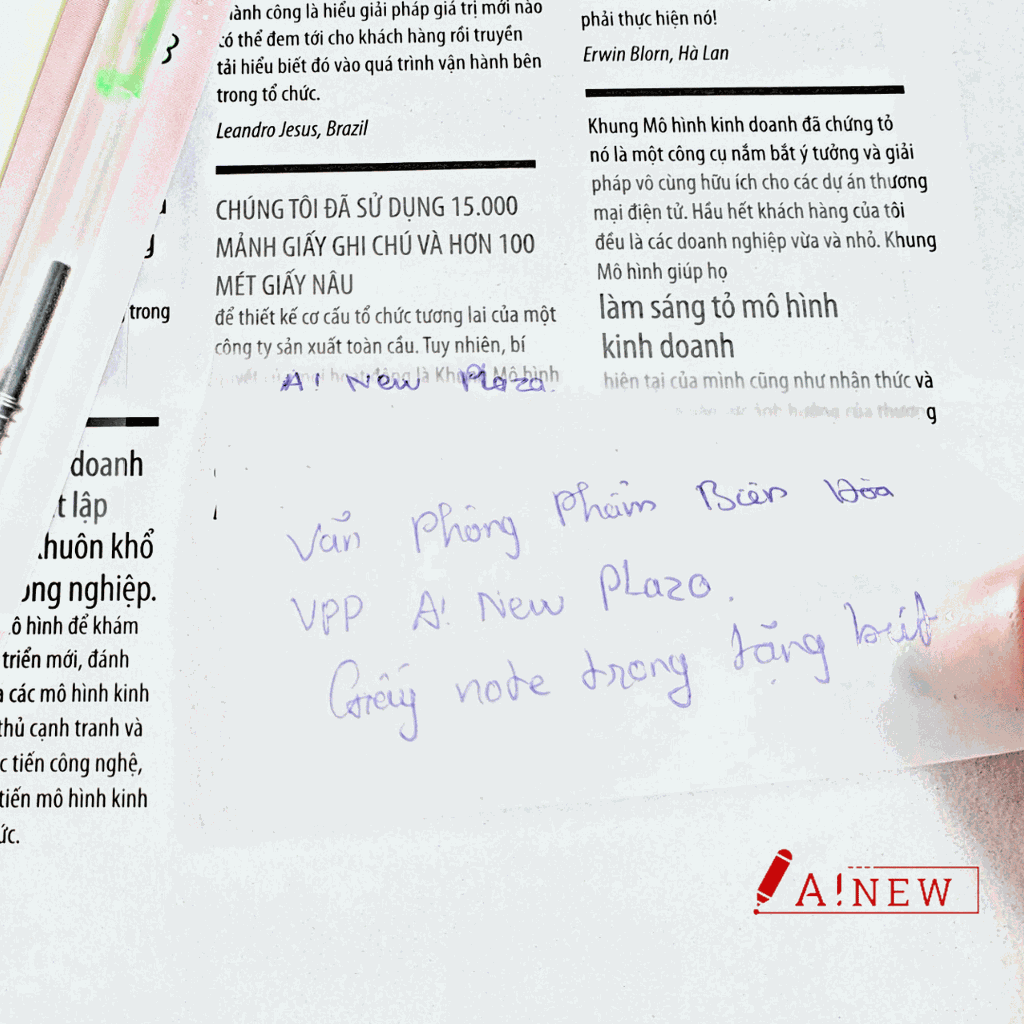 hành công là hiểu giải pháp giá trị mới nào
có thể đem tới cho khách hàng rồi truyền
tải hiểu biết đó vào quá trình vận hành bên
trong tổ chức.
Leandro Jesus, Brazil
CHÚNG TÔI ĐÃ SỬ DỤNG 15.000
MẢNH GIẤY GHI CHÚ VÀ HƠN 100
MÉT GIẤY NÂU
để thiết kế cơ cấu tổ chức tương lai của một
công ty sản xuất toàn cầu. Tuy nhiên, bí
là Mô hình
phải thực hiện nó!
Erwin Blorn, Hà Lan
Khung Mô hình kinh doanh đã chứng tỏ
nó là một công cụ nắm bắt ý tưởng và giải
pháp vô cùng hữu ích cho các dự án thương
mại điện tử. Hầu hết khách hàng của tôi
đều là các doanh nghiệp vừa và nhỏ. Khung
Mô hình giúp họ
làm sáng tỏ mô hình
kinh doanh
hiện tại của mình cũng như nhận thức và
trong
doanh
t lập
khuôn khổ
ông nghiệp.
ô hình để khám
triển mới, đánh
các mô hình kinh
thủ cạnh tranh và
c tiến công nghệ,
tiến mô hình kinh
ức.
A! New Plaza.
Văn Phòng Phẩm Biên Hòa
VPP A! New Plaza.
Giấy note trong tặng bút
A!NEW